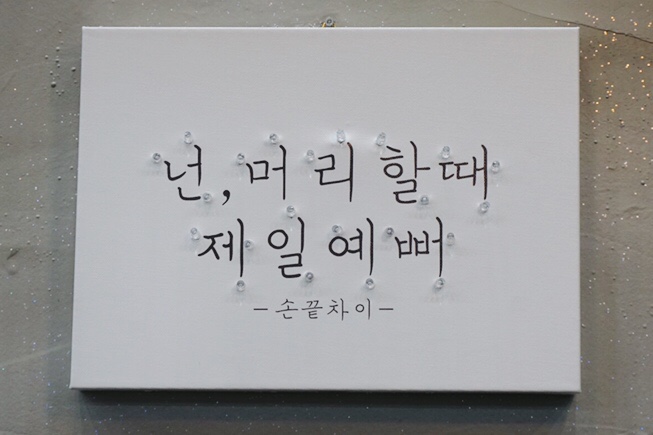 넌, 머리 할때
제일 예뻐
-손끝차이-